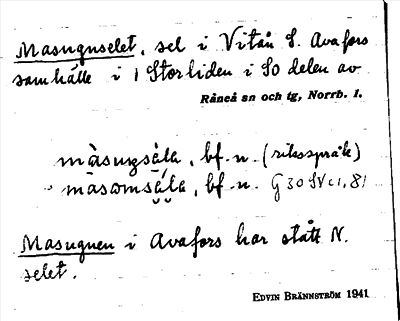 Masugnselet, sel i Vitån S. Avafors
samhälle i 1 Storliden i SO delen av
Råneå sn och tg, Norrb. l.
màsuŋsẹ́la, bf. n. (riksspråk)
màsomsẹ́la, bf. n. G 30 SV c1, 81
Masugnen i Avafors har stått N.
selet.
EDVIN BRÄNNSTRÖM 1941